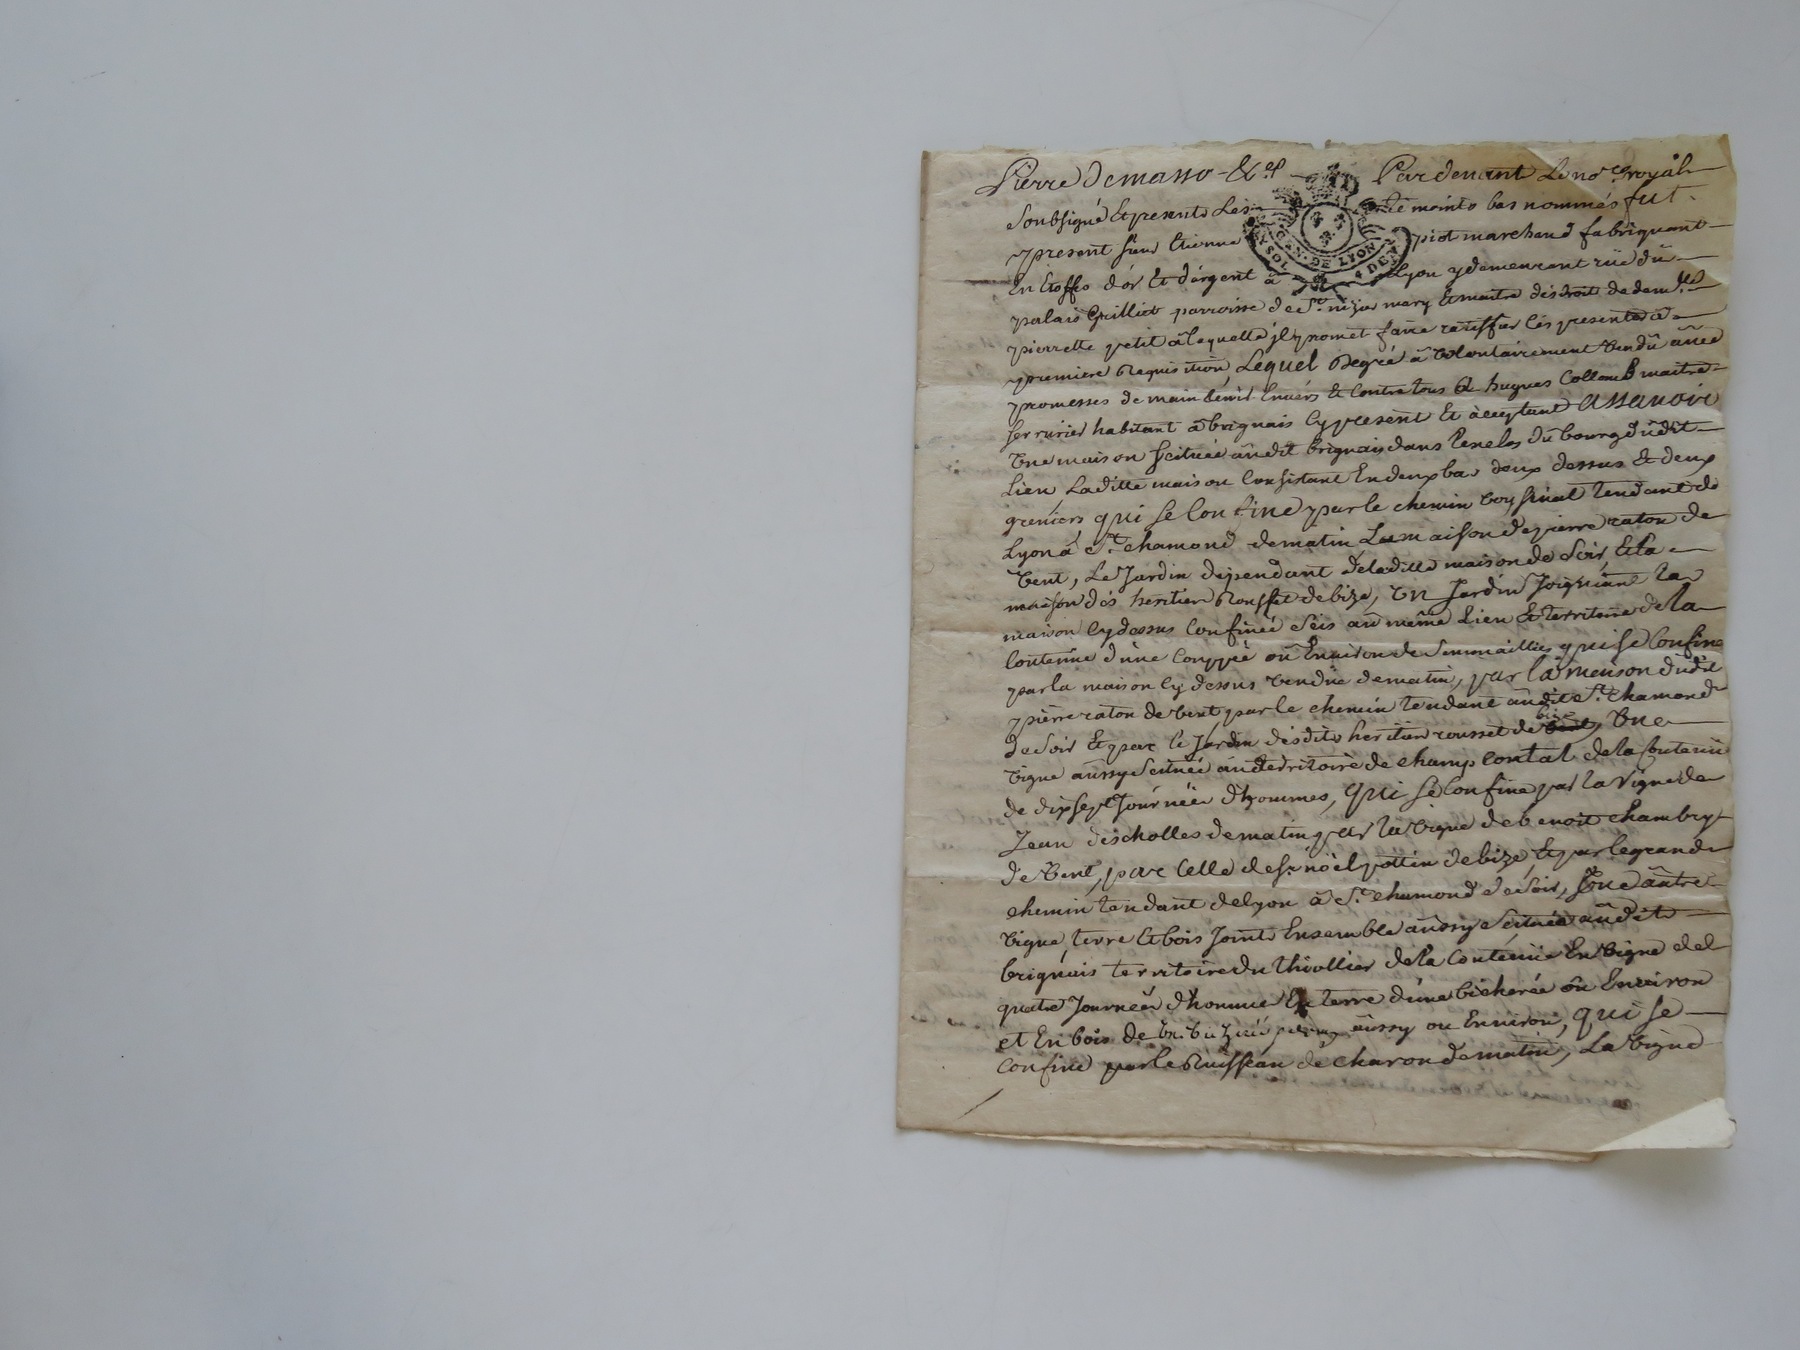 Pierre Demasso &.ª Pardevant Le no.re royâl
Soubsigné Et presents Les temoints bas nommés fut
GEN. DE LYON
SOL 4 DEN
present sieur Etienne piot marchand fabriquant
En Etoffes d'ór Et d'argent â Lyon y demeurant rüe dû
palais Grilliet parroisse de St. nizier mary Et maitre des droit de dem.lle
pierrette petit â laquelle jl promet faire rattiffier les presentes â
premiere Requisition, Lequel De gré â volontairement vendû âvec
promesses de maintenir Envers Et Contre tous â hugues Collomb maitre
serrurier habitant â brignais Cy present Et âcceptant Assavoir
Une maison scituée âudit brignais dans L'enclos dû bourg dûdit
Lieu, Laditte maison Consistant En deux bas deux dessus Et deux
greniers qui se Confine par le chemin tendant de
Lyon â St. chamond de matin La maison de pierre raton de
vent, Le Jardin dependant de laditte maison de Soir, Et la
maison dés heritiers Rousset de bize, Un Jardin Joignant la
maison Cy dessus Confinée Scis au même Lieu Et territoire de la
Contenüe d'une Couppée oû Environ de Semmailles, qui se Confine
par la maison Cy dessus vendue de matin, par la maison dudit
pierre raton de vent par le chemin tendant audit St. chamond
de Soir Et par le Jardin desdits heritiers rousset de vent bize, Une
vigne âussy Scituée audit territoire de champ Contal de la Contenüe
de dix sept Journées d'hommes, qui se Confine par la vigne de
Jean des cholles de matin par la vigne de benoit chambry
de Vent, par Celle de sr. nöel pottin de bize, Et par le grand
chemin tendant de Lyon â St. chamond de Soir, Une âutre
vigne, terre Et bois Joints Ensemble âussy Scituée âudit
brignais territoire du thiollier de la Contenüe En vigne de
quatre Journées d'homme En terre d'une bicherée oû Environ
et En bois de âussy ou Environ, qui se
Confine par le Ruisseau de charon de matin, La vigne